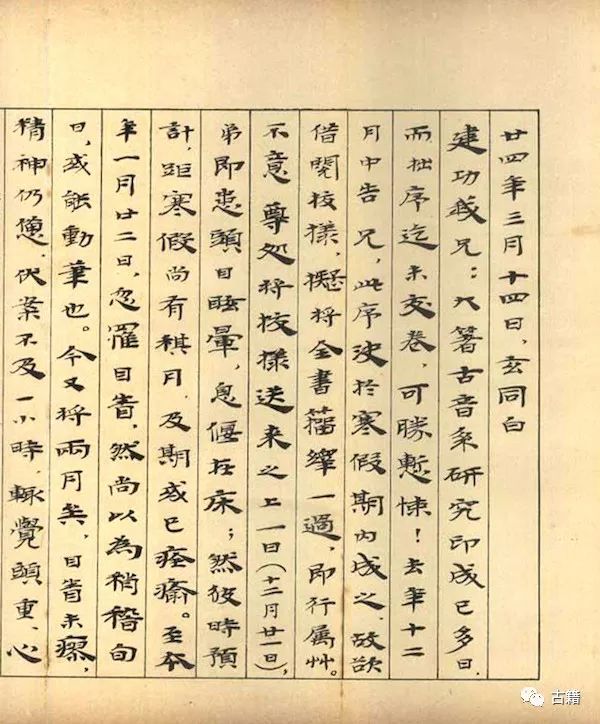 廿四年三月十四日，玄同白
建功我兄：大箸古音系研究印成已多日，
而拙序迄未交卷，可勝慙悚！去年十二
月中告兄，此序決於寒假期內成之，故欲
借閱校樣，擬將全書籀繹一過，即行屬艸。
不意尊処將校樣送来之上一日（十二月廿一日），
弟即患頭目眩暈，息偃在床；然彼時預
計，距寒假尚有稘月，及期或已痊瘉。至本
年一月廿二日，忽罹目眚，然尚以為稍稽旬
日，或能動筆也。今又將兩月矣，目眚未瘳，
精神仍憊，伏案不及一小時，輒覺頭重、心
古籍